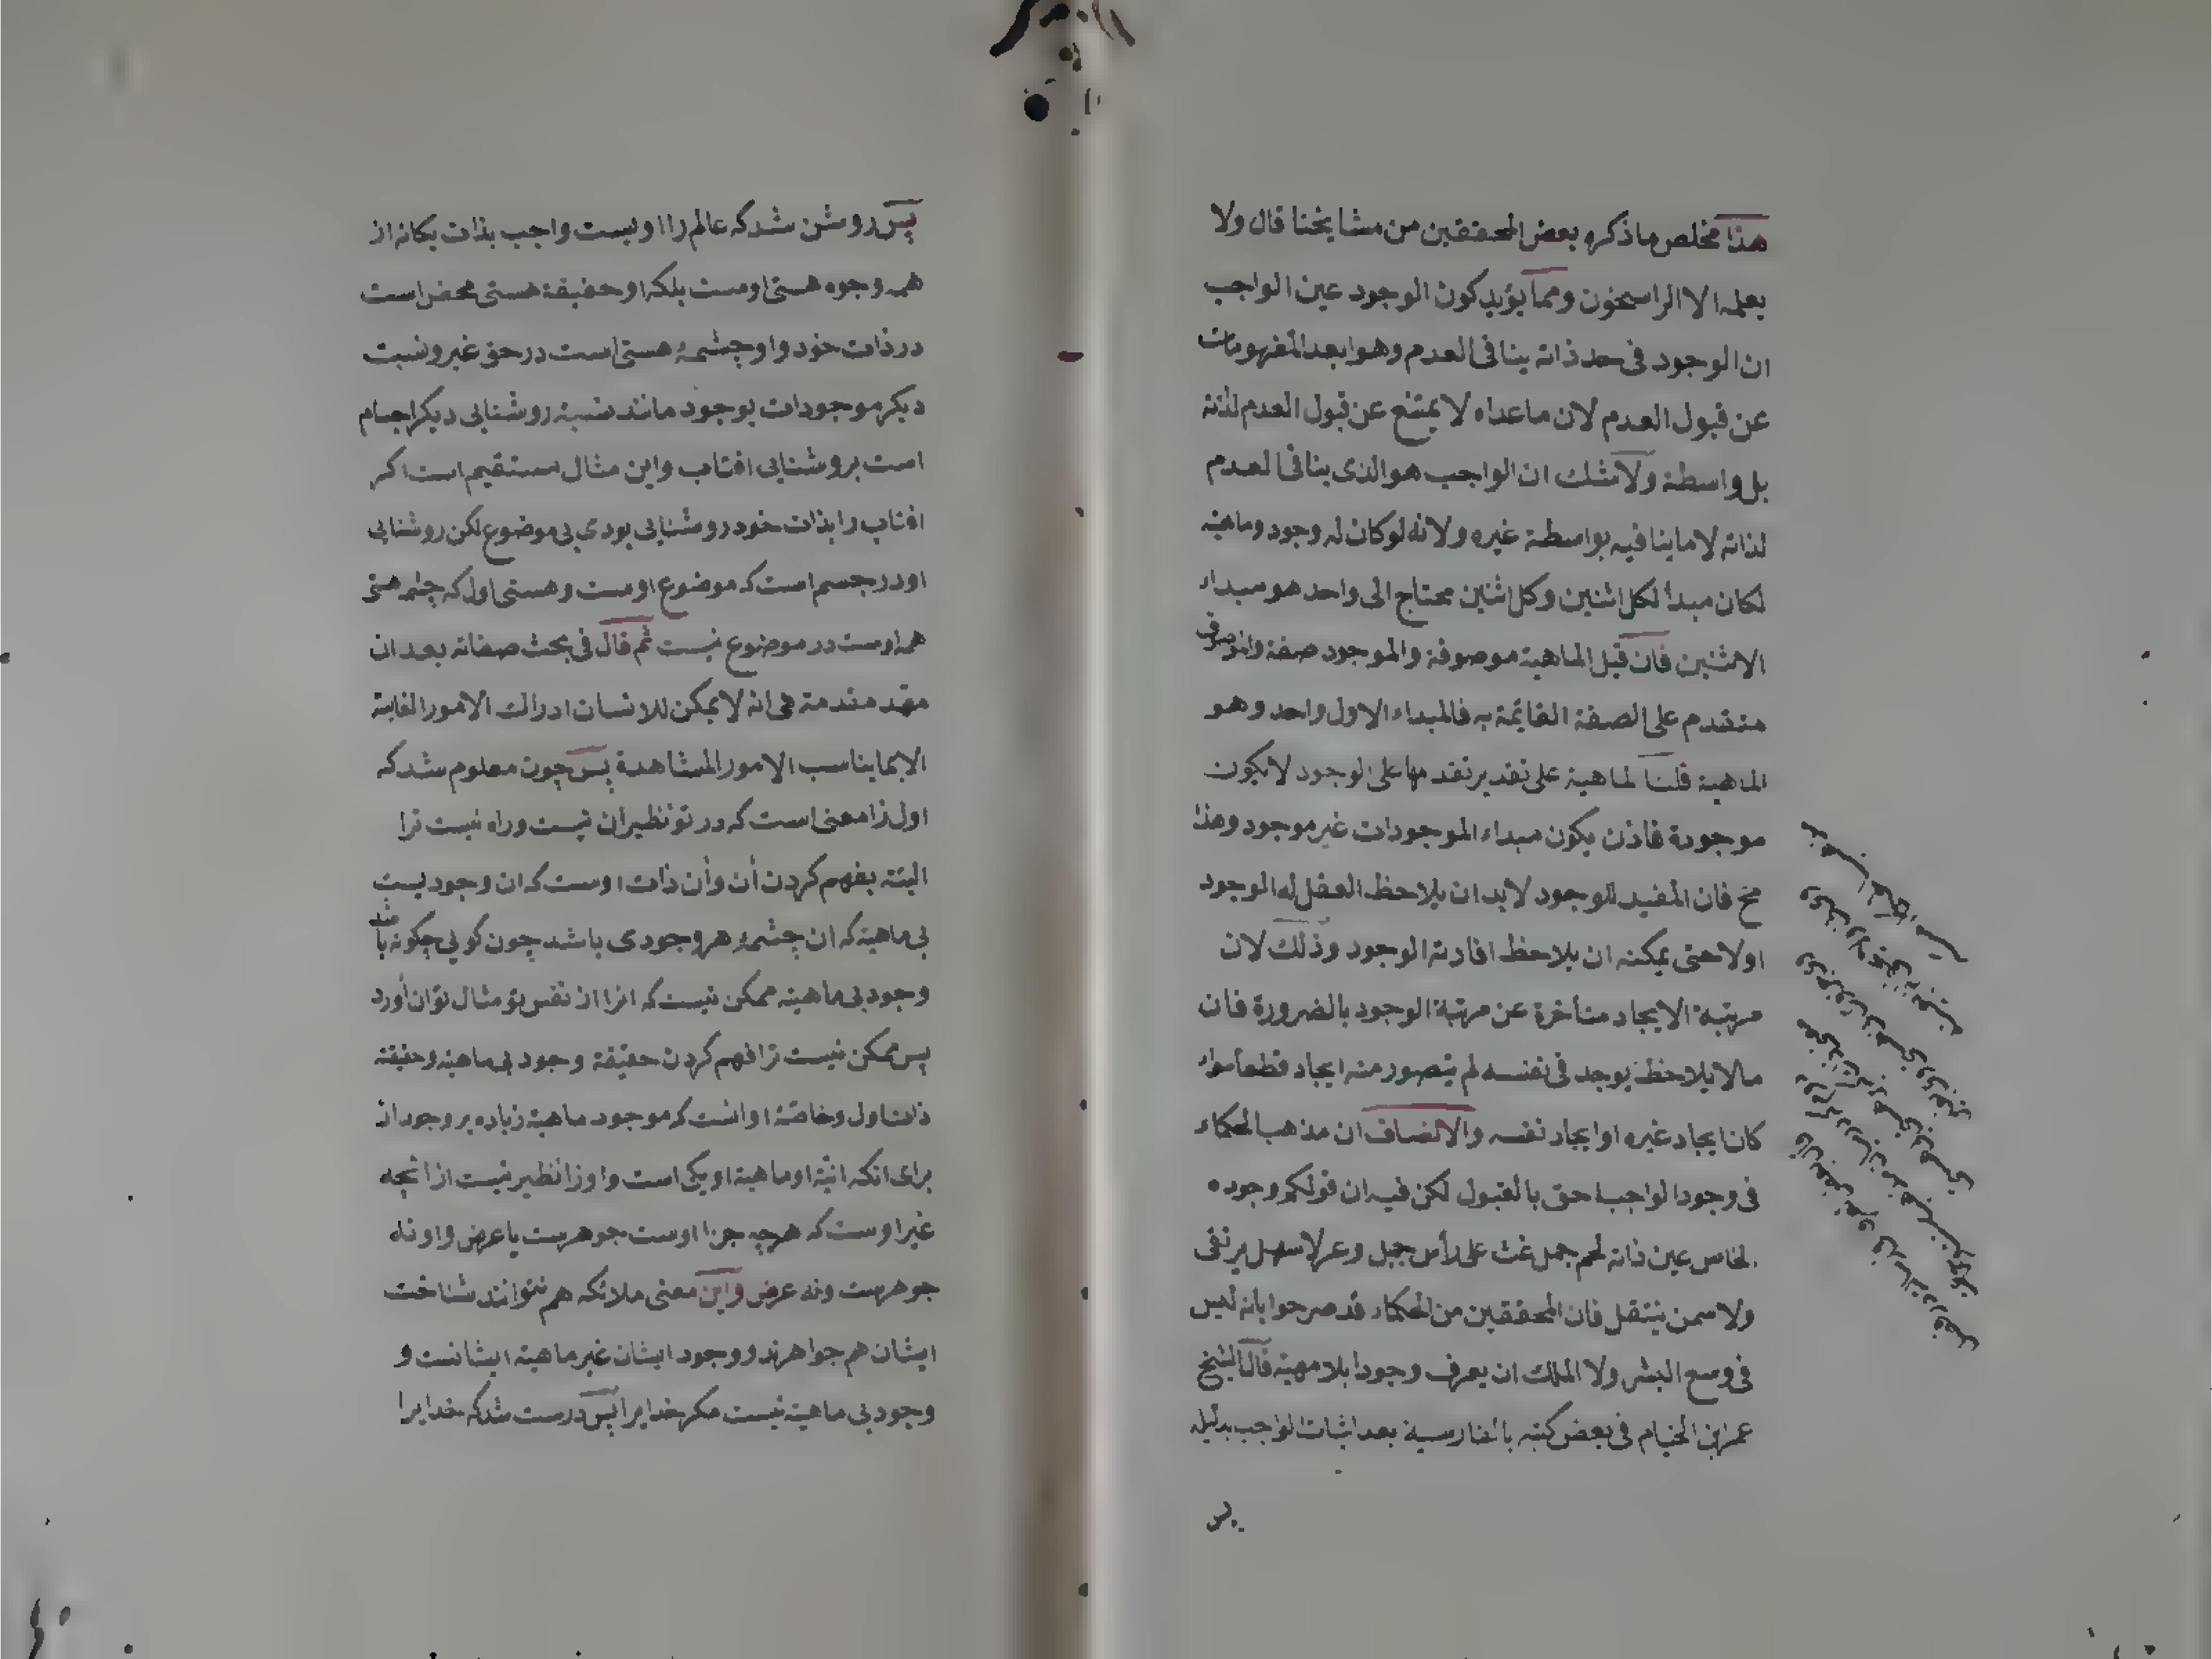 هذا مخلص ما ذكره بعض المحققين من مشايخنا قال ولا
يعلمه الا الراسخون ومما يؤيد كون الوجود عين الواجب
ان الوجود فى حد ذاته ينافى العدم وهو ابعد المفهومات
عن قبول العدم لان ماعداه لا يمتنع عن قبول العدم لذاته
بل بواسطة ولا شك ان الواجب هو الذى ينافى العدم
لذاته لا ما ينافيه بواسطة غيره ولانه لو كان له وجود وماهية
لكان مبدأ لكل اثنين وكل اثنين محتاج الى واحد هو مبداء
الاثنين فان قيل الماهية موصوفة والموجود صفة والموصوف
متقدم على الصفة القائمة به فالمبداء الاول واحد وهو
الماهية قلنا لماهية على تقدير تقدمها على الوجود لا يكون
موجودة فاذن يكون مبداء الموجودات غير موجود وهذا
مح فان المفيد للوجود لا بد ان يلاحظ العقل له الوجود
اولا حتى يمكنه ان يلاحظ افادته الوجود وذلك لان
مرتبة الايجاد متأخرة عن مرتبة الوجود بالضرورة فان
مالا يلاحظ يوجد فى نفسه لم يتصور منه ايجاد قطعا سواء
كان ايجاد غيره او ايجاد نفسه والانصاف ان مذهب الحكماء
فى وجود الواجب احق بالقبول لكن فيه ان قولكم وجوده
الخاص عين ذاته لحم جمل غث على رأس جبل وعر لا سهل يرتقى
ولا سمن ينتقل فان المحققين من الحكماء قد صرحوا بانه ليس
فى وسع البشر ولا الملك ان يعرف وجودا بلا مهية قال الشيخ
عمر بن الخيام فى بعض كتبه بالفارسية بعد اثبات الواجب بدليله
پس
پس روشن شد که عالم را اولیست واجب بذات یکانه از
همه وجوه هستی اوست بلکه او حقیقة هستی محض است
در ذات خود و او چشمهٔ هستی است در حق غیر و نسبت
دیکر موجودات بوجود مانند نسبة روشنایی دیکر اجسام
است بروشنایی افتاب واین مثال مستقیم است اکر
افتاب را بذات خود روشنایی بودی بی موضوع لکن روشنایی
او در جسم است که موضوع اوست و هستی اول که چشمه هستی
همه اوست در موضوع نیست ثم قال فى بحث صفاته بعد ان
مهد مقدمة هى انه لا يمكن للانسان ادراك الامور الغايبة
الا بما يناسب الامور المشاهدة پس چون معلوم شد که
اول را معنی است که در تو نظیر ان نیست و راه نیست ترا
البته بفهم کردن أن وأن ذات اوست که ان وجودیست
بی ماهیة که ان چشمهٔ هر وجودی باشد چون کویی چکونه باشد
وجود بی ماهیة ممکن نیست که انرا از نفس تو مثال توان أورد
پس ممکن نیست ترا فهم کردن حقیقة وجود بی ماهیة و حقیقة
ذات اول و خاصّهٔ او انست که موجود ماهیة زیاده بر وجود از
برای انکه انیّهٔ او ماهیة او یکی است و او را نظیر نیست از انچه
غیر اوست که هرچه جز اوست جوهرست یا عرض و او نه
جوهرست ونه عرض واین معنی ملائکه هم نتوانند شناخت
ایشان هم جواهرند و وجود ایشان غیر ماهیة ایشانست و
وجود بی ماهیة نیست مکر خدایرا پس درست شد که خدایرا